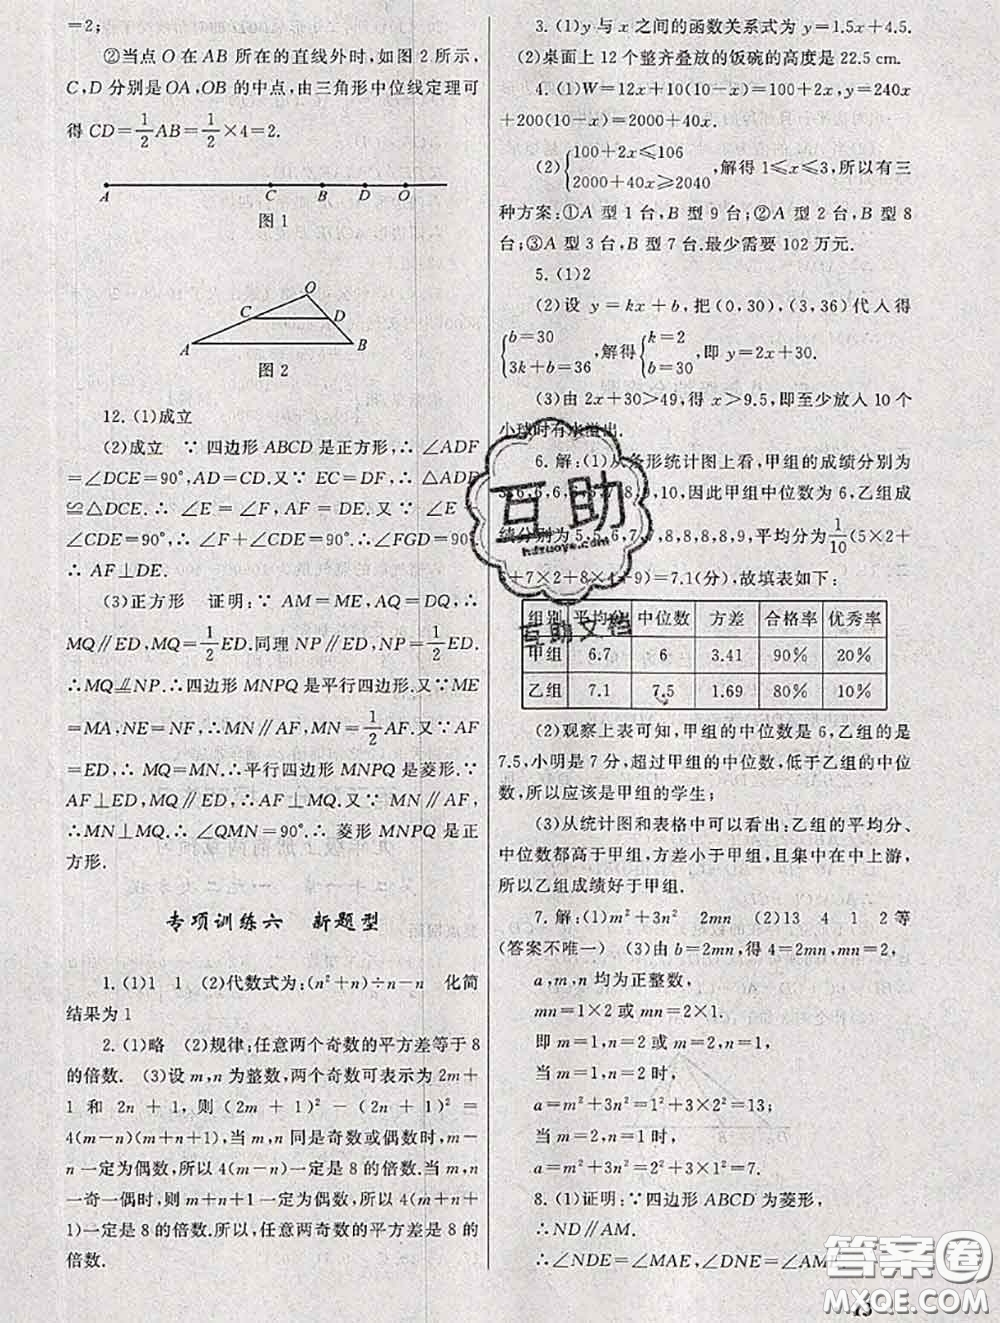 =2;
②当点 O 在 AB 所在的直线外时,如图 2 所示,
C,D 分别是 OA,OB 的中点,由三角形中位线定理可
得 CD=1/2AB=1/2×4=2.
A C B D O
图 1
O
C D
A B
图 2
12. (1)成立
(2)成立 ∵ 四边形 ABCD 是正方形,∴ ∠ADF
=∠DCE=90°,AD=CD.又∵ EC=DF,∴ △ADF
≌△DCE.∴ ∠E=∠F,AF=DE.又∵ ∠E+
∠CDE=90°,∴ ∠F+∠CDE=90°.∴ ∠FGD=90°.
∴ AF⊥DE.
(3)正方形 证明:∵ AM=ME,AQ=DQ,∴
MQ∥ED,MQ=1/2ED.同理 NP∥ED,NP=1/2ED.
∴MQ⫽NP.∴四边形 MNPQ 是平行四边形.又∵ME
=MA,NE=NF,∴MN∥AF,MN=1/2AF.又∵AF
=ED,∴ MQ=MN.∴平行四边形 MNPQ 是菱形.∵
AF⊥ED,MQ∥ED,∴ MQ⊥AF.又∵ MN∥AF,
∴MN⊥MQ.∴ ∠QMN=90°.∴ 菱形 MNPQ 是正
方形.
专项训练六 新题型
1. (1)1 1 (2)代数式为:(n²+n)÷n−n 化简
结果为1
2. (1)略 (2)规律;任意两个奇数的平方差等于 8
的倍数. (3)设 m,n 为整数,两个奇数可表示为 2m+
1 和 2n + 1, 则 (2m + 1)² − (2n + 1)² =
4(m−n)(m+n+1),当 m,n 同是奇数或偶数时,m−
n 一定为偶数,所以 4(m−n)一定是 8 的倍数.当 m,n
一奇一偶时,则 m+n+1 一定为偶数,所以 4(m+n+
1)一定是 8 的倍数.所以,任意两奇数的平方差是 8 的
倍数.
3. (1)y 与 x 之间的函数关系式为 y=1.5x+4.5.
(2)桌面上 12 个整齐叠放的饭碗的高度是 22.5 cm.
4. (1)W=12x+10(10−x)=100+2x,y=240x
+200(10−x)=2000+40x.
(2){100+2x≤106
2000+40x≥2040,解得 1≤x≤3,所以有三
种方案:①A 型 1 台,B 型 9 台;②A 型 2 台,B 型 8
台;③A 型 3 台,B 型 7 台.最少需要 102 万元.
5. (1)2
(2)设 y=kx+b,把(0,30),(3,36)代入得
{b=30
3k+b=36,解得{k=2
b=30,即 y=2x+30.
(3)由 2x+30>49,得 x>9.5,即至少放入 10 个
小球时有水溢出.
6. 解:(1)从条形统计图上看,甲组的成绩分别为
6,6,6,6,6,7,8,9,10,因此甲组中位数为 6,乙组成
绩分别为 5,5,6,7,7,8,8,8,8,9,平均分为1/10(5×2
+6+7×2+8×4+9)=7.1(分),故填表如下:
组别 平均分 中位数 方差 合格率 优秀率
甲组 6.7 6 3.41 90% 20%
乙组 7.1 7.5 1.69 80% 10%
(2)观察上表可知,甲组的中位数是 6,乙组的是
7.5,小明是 7 分,超过甲组的中位数,低于乙组的中位
数,所以应该是甲组的学生;
(3)从统计图和表格中可以看出:乙组的平均分、
中位数都高于甲组,方差小于甲组,且集中在中上游,
所以乙组成绩好于甲组.
7. 解:(1)m²+3n² 2mn (2)13 4 1 2 等
(答案不唯一) (3)由 b=2mn,得 4=2mn,mn=2,
a,m,n 均为正整数,
mn=1×2 或 mn=2×1.
即 m=1,n=2 或 m=2,n=1.
当 m=1,n=2 时,
a=m²+3n²=1²+3×2²=13;
当 m=2,n=1 时,
a=m²+3n²=2²+3×1²=7.
8. (1)证明:∵四边形 ABCD 为菱形,
∴ND∥AM.
∴∠NDE=∠MAE,∠DNE=∠AM
互助
hdzuoye.com
互助文档
答案圈
MXQE.COM